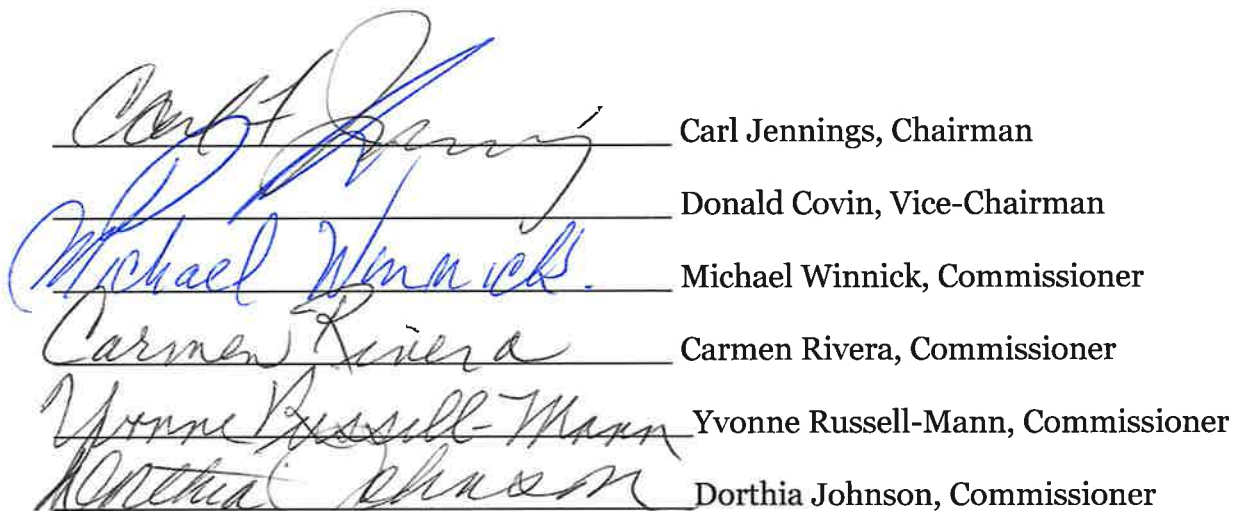 Carl F Jennings Carl Jennings, Chairman
Donald Covin, Vice-Chairman
Michael Winnick. Michael Winnick, Commissioner
Carmen Rivera Carmen Rivera, Commissioner
Yvonne Russell-Mann Yvonne Russell-Mann, Commissioner
Dorthia Johnson Dorthia Johnson, Commissioner